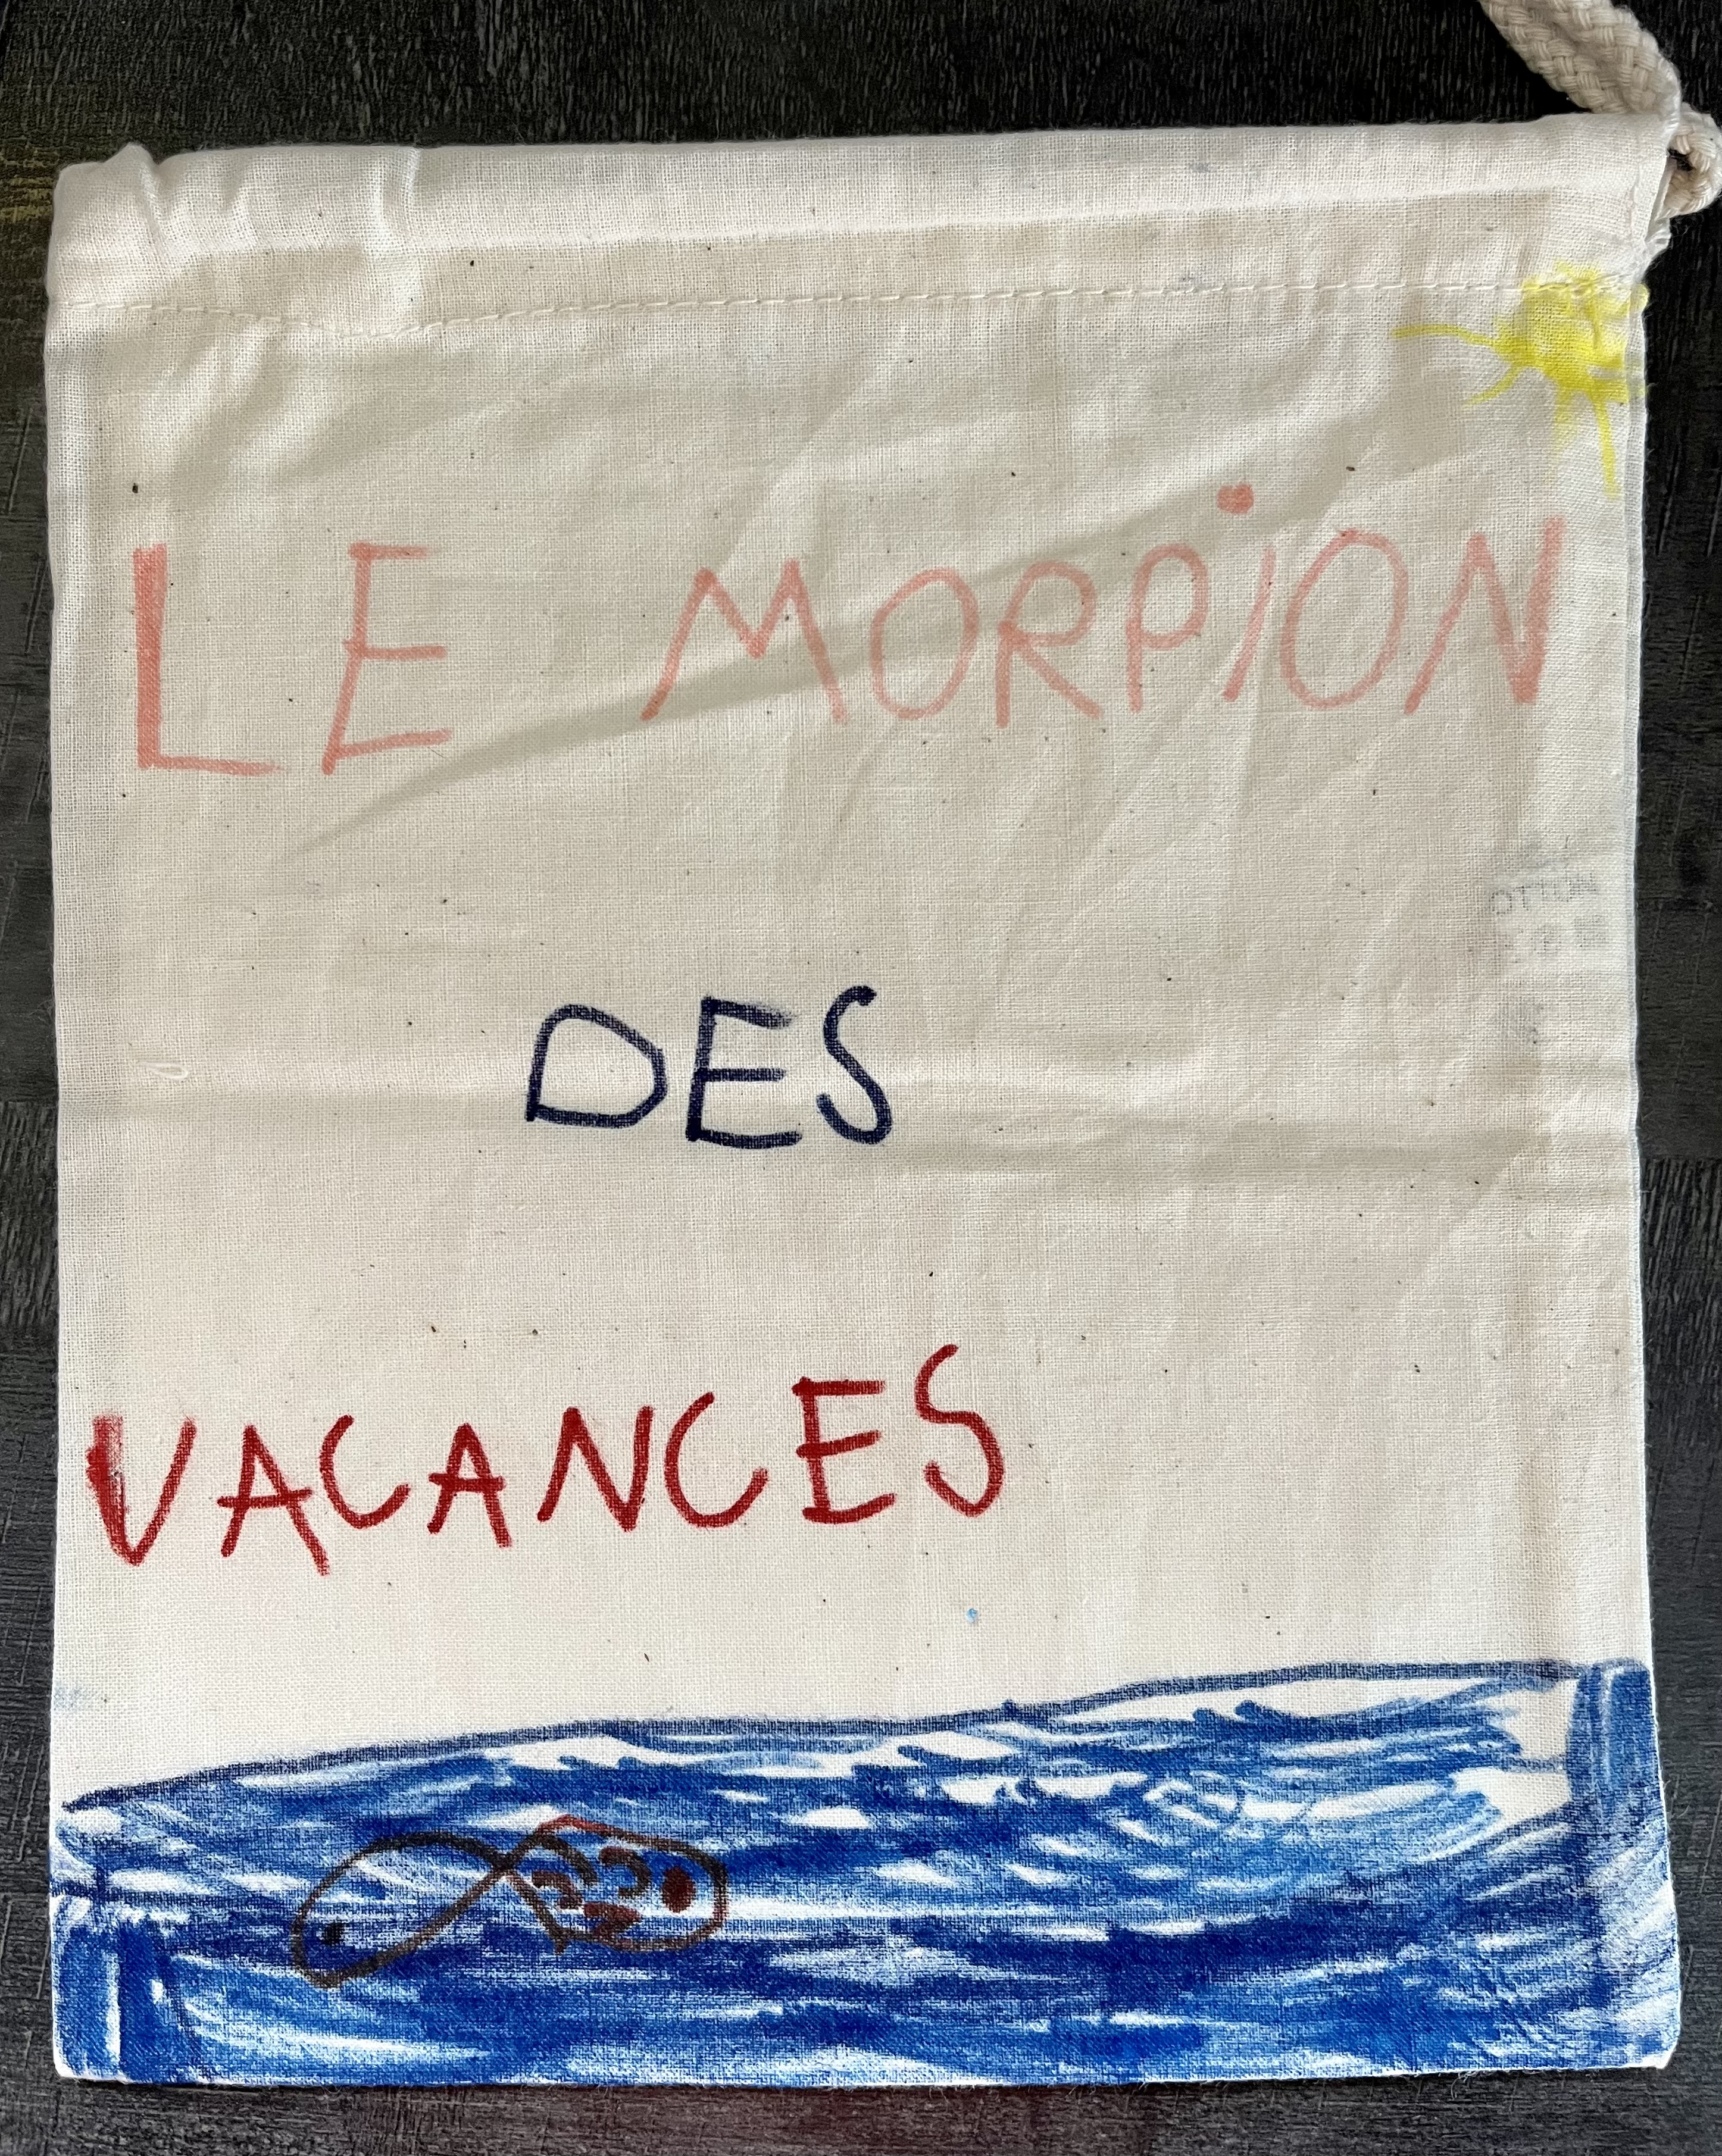 LE MORPiON
DES
VACANCES